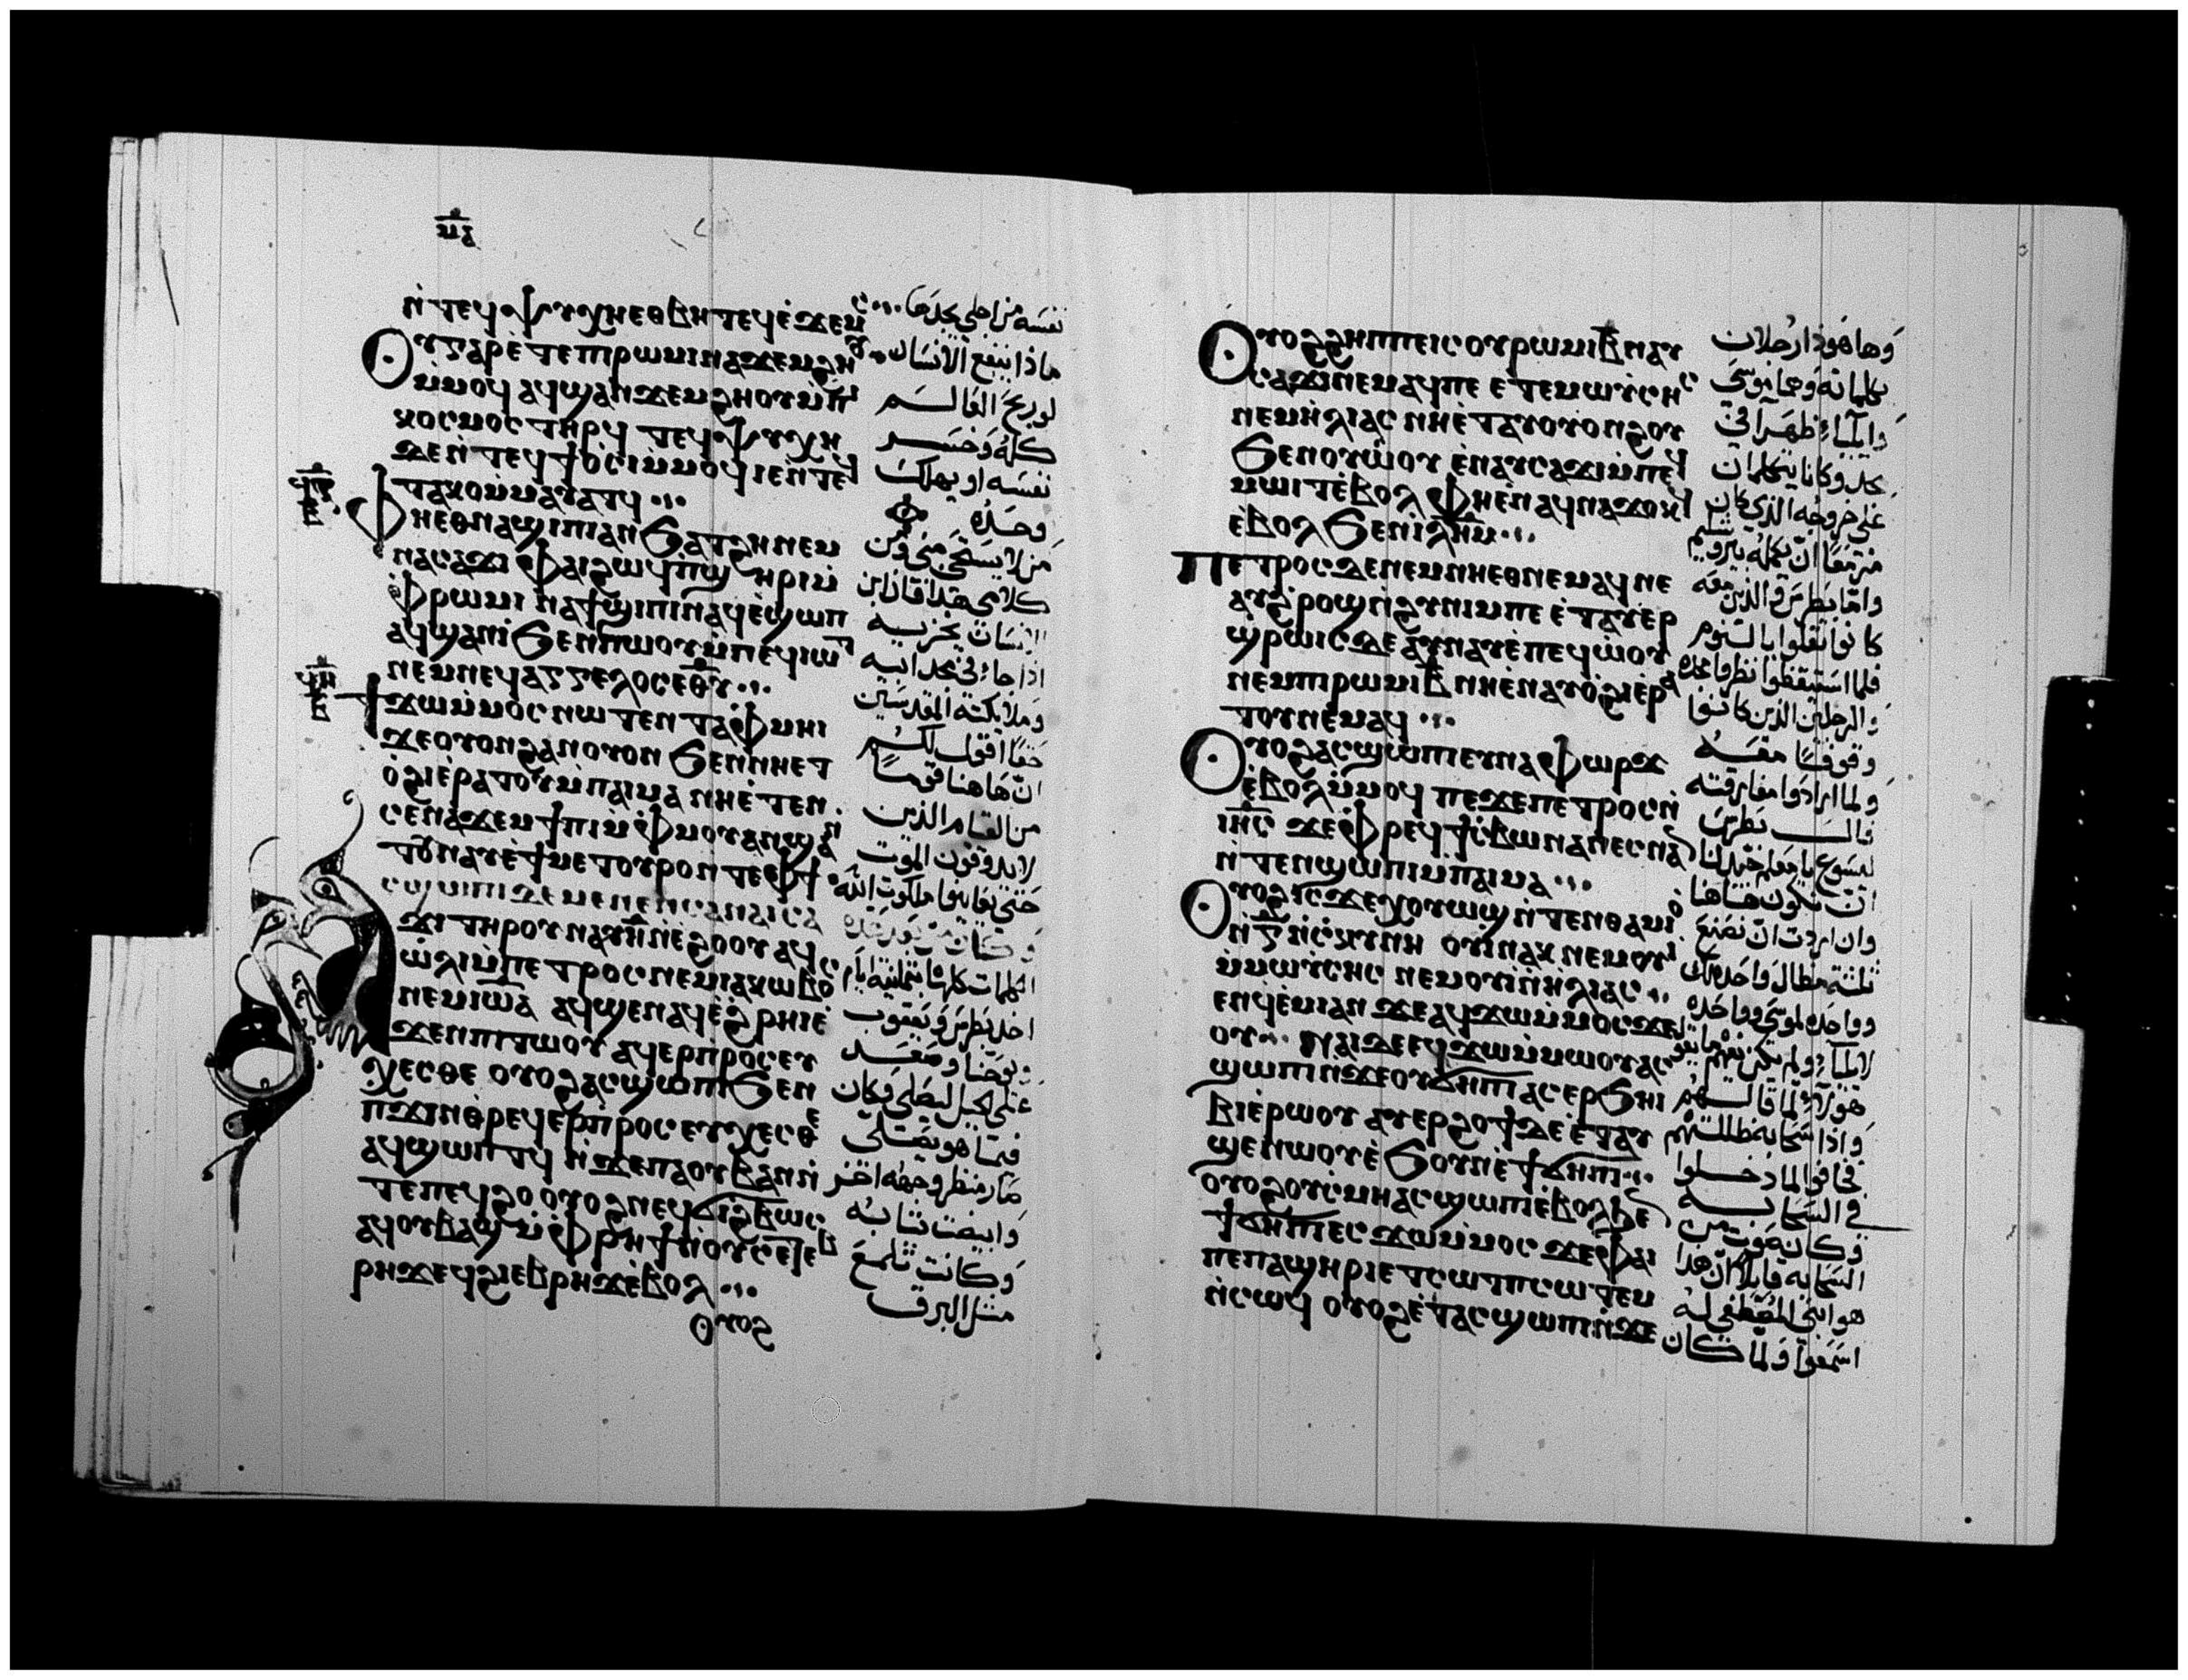 ⲙ̅ⲁ̅
ⲛ̀ⲧⲉϥⲯⲩⲭⲏ ⲉⲑⲃⲏⲧ ⲉϥⲉ̀ϫⲉⲙⲥ
ⲟⲩⲅⲁⲣ ⲉ̀ⲧⲉ ⲡⲓⲣⲱⲙⲓ ⲛⲁϫⲉⲙϩⲏⲟⲩ
ⲙ̀ⲙⲟϥ ⲁϥϣⲁⲛϫⲉⲙϩⲏⲟⲩ ⲙ̀ⲡⲓ
ⲕⲟⲥⲙⲟⲥ ⲧⲏⲣϥ ⲧⲉϥⲯⲩⲭⲏ
ⲇⲉ ⲛ̀ⲧⲉϥϯⲟ̀ⲥⲓ ⲙ̀ⲙⲟϥ ⲓⲉ ⲛ̀ⲧⲉϥ
ⲧⲁⲕⲟ ⲙ̀ⲙⲁⲩⲁⲧϥ
ⲫⲏ ⲉⲑⲛⲁϣⲓⲡⲓ ⲁⲛ ϧⲁⲧϩⲏ ⲛⲉⲙ
ⲛⲁⲥⲁϫⲓ ⲫⲁⲓ ϩⲱϥ ⲡ̀ϣⲏⲣⲓ ⲙ̀
ⲫⲣⲱⲙⲓ ⲛⲁϯϣⲓⲡⲓ ⲛⲁϥ ⲉ̀ϣⲱⲡ
ⲁϥϣⲁⲛⲓ̀ ϧⲉⲛ ⲡ̀ⲱⲟⲩ ⲙ̀ⲡⲉϥⲓⲱⲧ
ⲛⲉⲙ ⲛⲉϥⲁⲅⲅⲉⲗⲟⲥ ⲉⲑⲩ
ϯϫⲱ ⲙ̀ⲙⲟⲥ ⲛⲱⲧⲉⲛ ⲧⲁⲫⲙⲏⲓ
ϫⲉ ⲟⲩⲟⲛ ϩⲁⲛⲟⲩⲟⲛ ϧⲉⲛ ⲛⲏⲉⲧ
ⲟ̀ϩⲓ ⲉ̀ⲣⲁⲧⲟⲩ ⲙ̀ⲡⲁⲓⲙⲁ ⲛⲏⲉ̀ⲧⲉⲛ
ⲥⲉⲛⲁϫⲉⲙϯⲡⲓ ⲙ̀ⲫⲙⲟⲩ ⲁⲛ ϣⲁ
ⲧⲟⲩⲛⲁⲩ ⲉ̀ϯⲙⲉⲧⲟⲩⲣⲟ ⲛ̀ⲧⲉ ⲫϯ
ⲁⲥϣⲱⲡⲓ ⲇⲉ ⲙⲉⲛⲉⲛⲥⲁ ⲛⲁⲓⲥⲁ
ϫⲓ ⲧⲏⲣⲟⲩ ⲛⲁⲩ ⲏ̅ ⲛ̀ⲉ̀ϩⲟⲟⲩ ⲁϥ
ⲱ̀ⲗⲓ ⲙ̀ⲡⲉⲧⲣⲟⲥ ⲛⲉⲙ ⲓⲁⲕⲱⲃⲟⲥ
ⲛⲉⲙ ⲓⲱⲁ ⲁϥϣⲉⲛⲁϥ ⲉ̀ϩⲣⲏⲓ ⲉ̀
ϫⲉⲛ ⲡⲓⲧⲱⲟⲩ ⲁϥⲉⲣⲡ̀ⲣⲟⲥⲉⲩ
ⲭⲉⲥⲑⲉ ⲟⲩⲟϩ ⲁⲥϣⲱⲡⲓ ϧⲉⲛ
ⲡϫⲓⲛⲑⲣⲉϥⲉⲣⲡ̀ⲣⲟⲥⲉⲩⲭⲉⲥⲑⲉ
ⲁϥϣⲱⲡ ⲧϥ ⲛ̀ϫⲉ ⲡⲁⲟⲩⲃⲁⲛ ⲛ̀
ⲧⲉ ⲡⲉϥϩⲟ ⲟⲩⲟϩ ⲛⲉϥϭⲓϩⲃⲱⲥ
ⲁϥⲟⲩⲃⲁϣ ⲙ̀ⲫⲣⲏϯ ⲛ̀ⲟⲩⲥⲉⲧⲉⲃ
ⲣⲏϫ ⲉϥϩⲓⲉⲃⲣⲏϫ ⲉ̀ⲃⲟⲗ
ⲟⲩⲟϩ
نفسه من اجلي يجدها
ماذا ينفع الانسان
لو ربح العالم
كله وخسر
نفسه او يهلك
وحده
من لا يستحى منى ومن
كلامى هذا فان ابن
الانسان يخزيه
اذا جاء فى مجد ابيه
وملايكته المقدسين
حقا اقول لكم
ان هاهنا قوما
من القيام الذين
لا يذوقون الموت
حتى يعاينوا ملكوت الله
وكان من بعد هذه
الكلمات كلها بثمانية ايام
اخذ بطرس ويعقوب
ويوحنا وصعد
على الجبل ليصلى وكان
فيما هو يصلى
صار منظر وجهه اخر
وابيضت ثيابه
وكانت تلمع
مثل البرق
ⲟⲩⲟϩ ϩⲏⲡⲡⲉ ⲓⲥ ⲟⲩⲣⲱⲙⲓ ⲃ̅ ⲛⲁⲩ
ⲥⲁϫⲓ ⲛⲉⲙⲁϥ ⲡⲉ ⲉ̀ⲧⲉ ⲙⲱⲩ̀ⲥⲏⲥ
ⲛⲉⲙ ⲏ̀ⲗⲓⲁⲥ ⲛⲏⲉ̀ⲧⲁⲩⲟⲩⲟⲛϩⲟⲩ
ϧⲉⲛ ⲟⲩⲱ̀ⲟⲩ ⲉ̀ⲛⲁⲩⲥⲁϫⲓ ⲙ̀ⲡⲉϥ
ⲙⲱⲓⲧ ⲉ̀ⲃⲟⲗ ⲫⲏ ⲉ̀ⲛⲁϥⲛⲁϫⲟⲕϥ
ⲉ̀ⲃⲟⲗ ϧⲉⲛ ⲓⲗⲏⲙ
ⲡⲉⲧⲣⲟⲥ ⲇⲉ ⲛⲉⲙ ⲛⲏ ⲉⲑⲛⲉⲙⲁϥ ⲛⲉ
ⲁⲩϩⲣⲟϣ ⲛ̀ϩⲩⲛⲓⲙ ⲡⲉ ⲉ̀ⲧⲁⲩⲉⲣ
ϣ̀ⲣⲱⲓⲥ ⲇⲉ ⲁⲩⲛⲁⲩ ⲉ̀ⲡⲉϥⲱ̀ⲟⲩ
ⲛⲉⲙ ⲡⲓⲣⲱⲙⲓ ⲃ̅ ⲛⲏ ⲉ̀ⲛⲁⲩⲟ̀ϩⲓ ⲉ̀ⲣⲁ
ⲧⲟⲩ ⲛⲉⲙⲁϥ
ⲟⲩⲟϩ ⲁⲥϣⲱⲡⲓ ⲉⲩⲛⲁⲫⲱⲣϫ
ⲉ̀ⲃⲟⲗ ⲙ̀ⲙⲟϥ ⲡⲉϫⲉ ⲡⲉⲧⲣⲟⲥ ⲛ̀
ⲓⲏⲥ ϫⲉ ⲫⲣⲉϥϯⲥⲃⲱ ⲛⲁⲛⲉⲥ ⲛⲁⲛ
ⲛ̀ⲧⲉⲛϣⲱⲡⲓ ⲙ̀ⲡⲁⲓⲙⲁ
ⲟⲩⲟϩ ⲓⲥϫⲉ ⲭⲟⲩⲱϣ ⲛ̀ⲧⲉⲛⲑⲁⲙⲓⲟ
ⲛ̀ ⲅ̅ ⲛ̀ⲥⲕⲩⲛⲏ ⲟⲩⲓ̀ ⲛⲁⲕ ⲛⲉⲙ ⲟⲩⲓ̀
ⲙ̀ⲙⲱⲩ̀ⲥⲏⲥ ⲛⲉⲙ ⲟⲩⲓ̀ ⲛ̀ⲏ̀ⲗⲓⲁⲥ
ⲉⲛϥⲉ̀ⲙⲓ ⲁⲛ ϫⲉ ⲁϥϫⲱ ⲙ̀ⲙⲟⲥ ϫⲉ
ⲟⲩ ⲛⲁⲓ ⲇⲉ ⲉϥϫⲱ ⲙ̀ⲙⲱⲟⲩ ⲁⲥ
ϣⲱⲡⲓ ⲛ̀ϫⲉ ⲟⲩϭⲏⲡⲓ ⲁⲥⲉⲣϧⲏⲓ
ⲃⲓ ⲉ̀ⲣⲱⲟⲩ ⲁⲩⲉⲣϩⲟϯ ⲇⲉ ⲉ̀ⲧⲁⲩ
ϣⲉⲛⲱⲟⲩ ⲉ̀ϧⲟⲩⲛ ⲉ̀ϯϭⲏⲡⲓ
ⲟⲩⲟϩ ⲟⲩⲥ̀ⲙⲏ ⲁⲥϣⲱⲡⲓ ⲉ̀ⲃⲟⲗϧⲉⲛ
ϯϭⲏⲡⲓ ⲉⲥϫⲱ ⲙ̀ⲙⲟⲥ ϫⲉ ⲫⲁⲓ
ⲡⲉ ⲡⲁϣⲏⲣⲓ ⲉⲧⲥⲱⲧⲡ ⲥⲱⲧⲉⲙ
ⲛ̀ⲥⲱϥ ⲟⲩⲟϩ ⲉ̀ⲧⲁⲥϣⲱⲡⲓ ⲛ̀ϫⲉ
وها هوذا رجلان
يكلمانه وهما موسى
وايليا ظهرا فى
مجد وكانا يتكلمان
على خروجه الذى كان
مزمعا ان يكمله بيروشليم
واما بطرس والذين معه
كانوا ثقلوا بالنوم
فلما استيقظوا نظروا مجده
والرجلين الذين كانوا
وقوفا معه
ولما ارادوا مفارقته
قال بطرس
ليسوع يا معلم جيد لنا
ان نكون هاهنا
وان اردت ان نصنع
ثلثة مظال واحده لك
وواحده لموسى وواحده
لايليا ولم يكن يعلم ما يقول
هولاء لما قالهم
واذا سحابه ظللتهم
فخافوا لما دخلوا
فى السحابه
وكان صوت من
السحابه قايلا ان هذا
هو ابنى المصطفى له
اسمعوا ولما كان